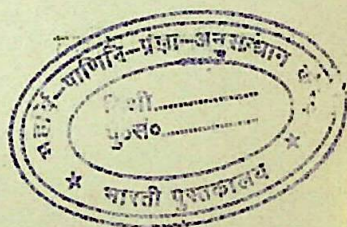 महर्षि-पाणिनि-प्रज्ञा-अनुसन्धान
मिती..........
पु०सं०..........
★ भारती पुस्तकालय ★